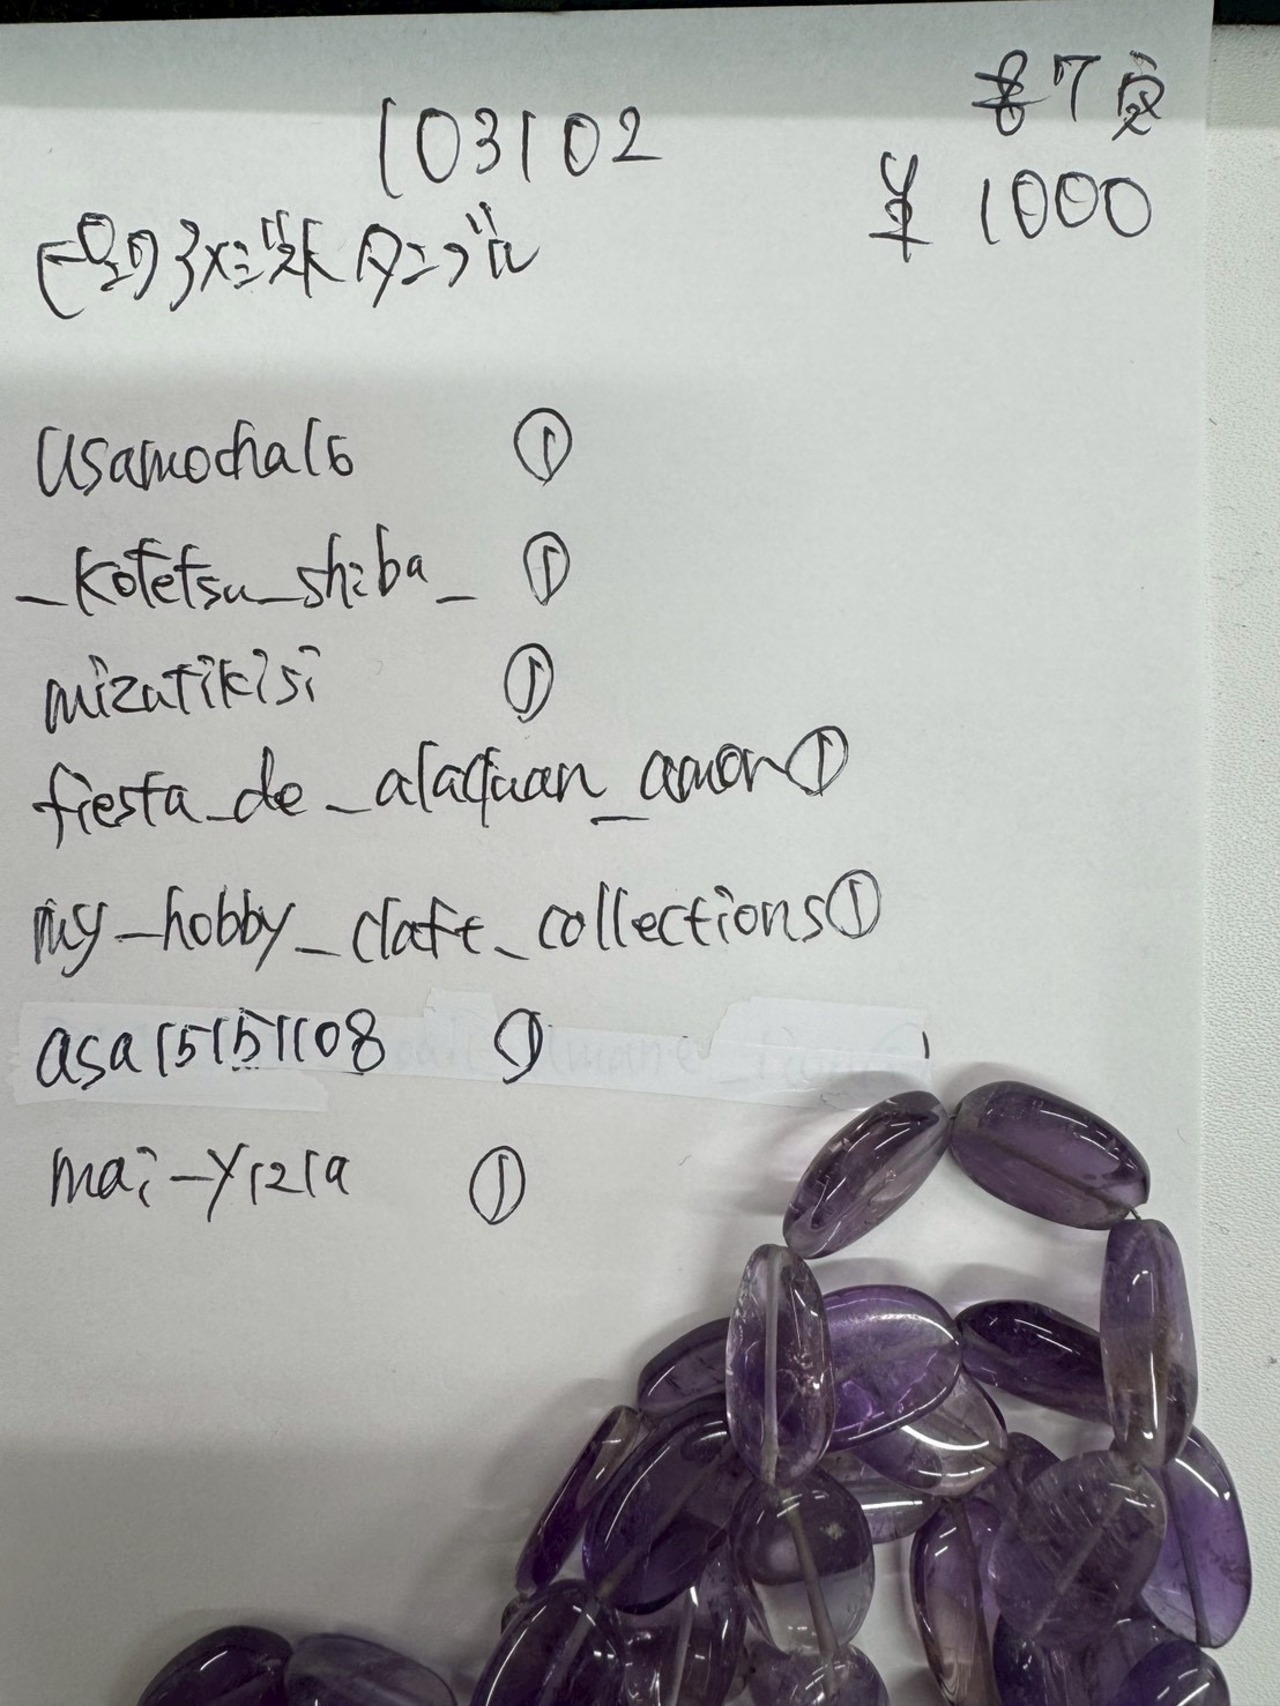 7
103102
¥ 1000
タンブル
usamocha16 ①
_kotetsu_shiba_ ①
mizutikisi ①
fiesta_de_alacquan_amor ①
my_hobby_claft_collections ①
asa15151108 ①
mai-y121a ①